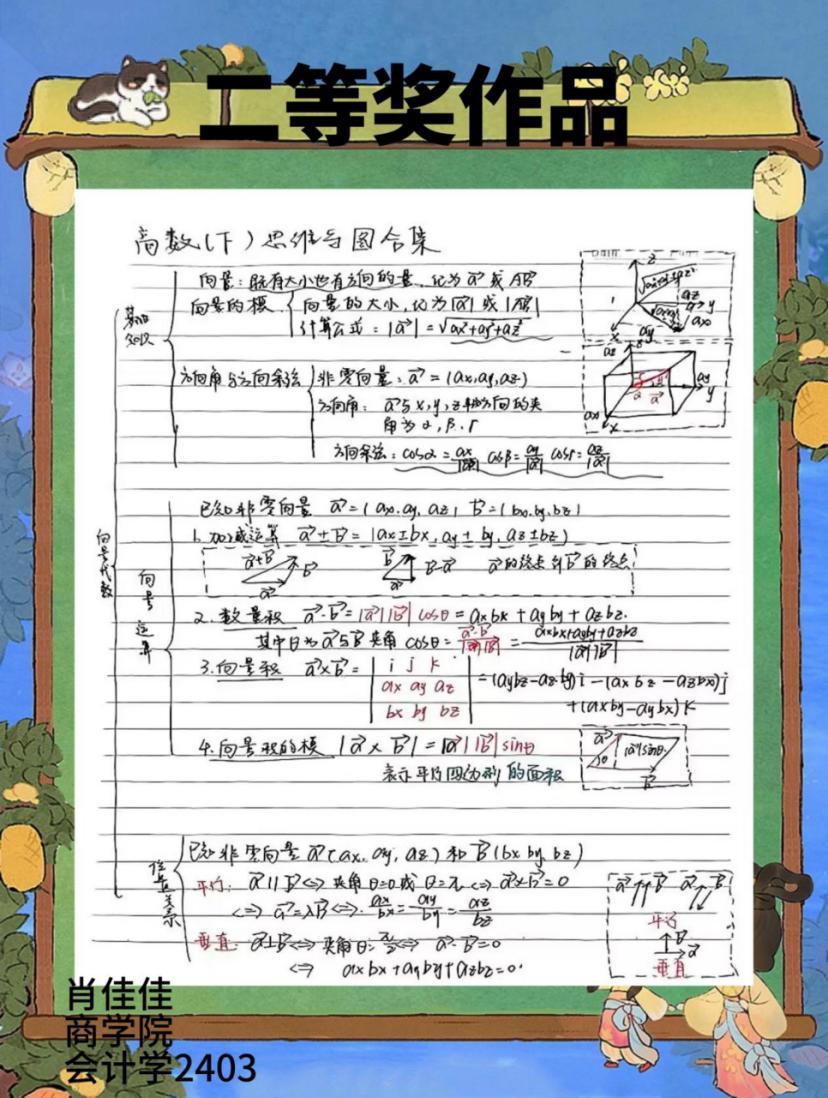 二等奖作品
高数(下)思维导图合集
向量代数
基础知识
向量：既有大小也有方向的量，化为 a⃗ 或 AB⃗
向量的模
向量的大小，化为 |a⃗| 或 |AB⃗|
计算公式：|a⃗| = √ax²+ay²+az²
方向角与方向余弦
非零向量：a⃗ = (ax, ay, az)
方向角：a⃗与x, y, z轴方向的夹
角为 α, β, r
方向余弦：cosα = ax/|a⃗| cosβ = ay/|a⃗| cosr = az/|a⃗|
z
az
y
ax
x
ay
az
z
ay
y
α
a⃗
ax
x
向量运算
已知非零向量 a⃗ = (ax, ay, az) b⃗ = (bx, by, bz)
1. 加减运算 a⃗ ± b⃗ = (ax ± bx, ay ± by, az ± bz)
a⃗+b⃗ b⃗ a⃗
b⃗ b⃗-a⃗ a⃗ a⃗的终点到b⃗的终点
2. 数量积 a⃗·b⃗ = |a⃗||b⃗| cosθ = axbx + ayby + azbz.
其中θ为a⃗与b⃗夹角 cosθ = a⃗·b⃗/|a⃗||b⃗| = axbx+ayby+azbz/|a⃗||b⃗|
3. 向量积 a⃗×b⃗ = | i j k |
| ax ay az | = (aybz-azby)i - (axbz-azbx)j
| bx by bz | + (axby-aybx)k
4. 向量积的模 |a⃗ × b⃗| = |a⃗||b⃗| sinθ
表示平行四边形的面积
a⃗ θ |a⃗|sinθ b⃗
位置关系
已知非零向量 a⃗(ax, ay, az) 和 b⃗(bx, by, bz)
平行：a⃗∥b⃗ ⇔ 夹角θ=0或θ=π ⇔ a⃗×b⃗=0
⇔ a⃗=λb⃗ ⇔ ax/bx = ay/by = az/bz
垂直：a⃗⊥b⃗ ⇔ 夹角θ=π/2 ⇔ a⃗·b⃗=0
⇔ axbx + ayby + azbz = 0
a⃗ b⃗ a⃗ b⃗
平行
b⃗
a⃗
垂直
肖佳佳
商学院
会计学2403